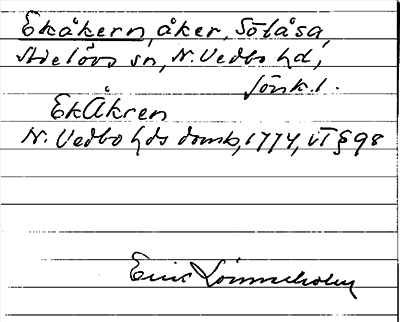 Ekåkern, åker, Sölåsa,
Adelövs sn, N. Vedbo hd,
Jönk.l.
EkÅkren
N. Vedbo hds domb, 1774, vT § 98
Eric Lönnerholm